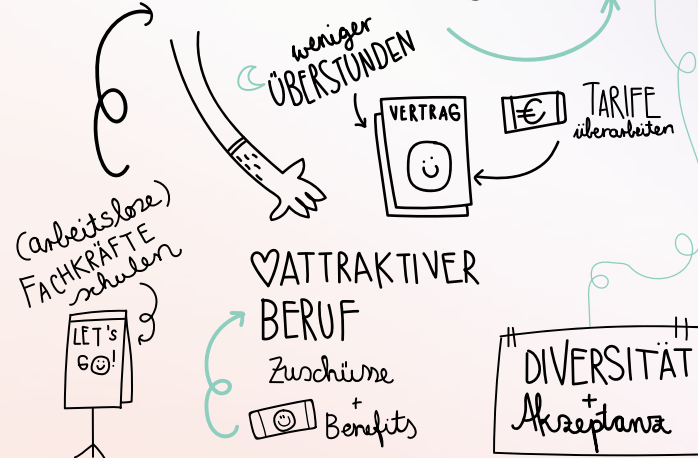 weniger
ÜBERSTUNDEN
VERTRAG
€
TARIFE
überarbeiten
(arbeitslose)
FACHKRÄFTE
schulen
LET'S
GO!
ATTRAKTIVER
BERUF
Zuschüsse
+
Benefits
DIVERSITÄT
+
Akzeptanz